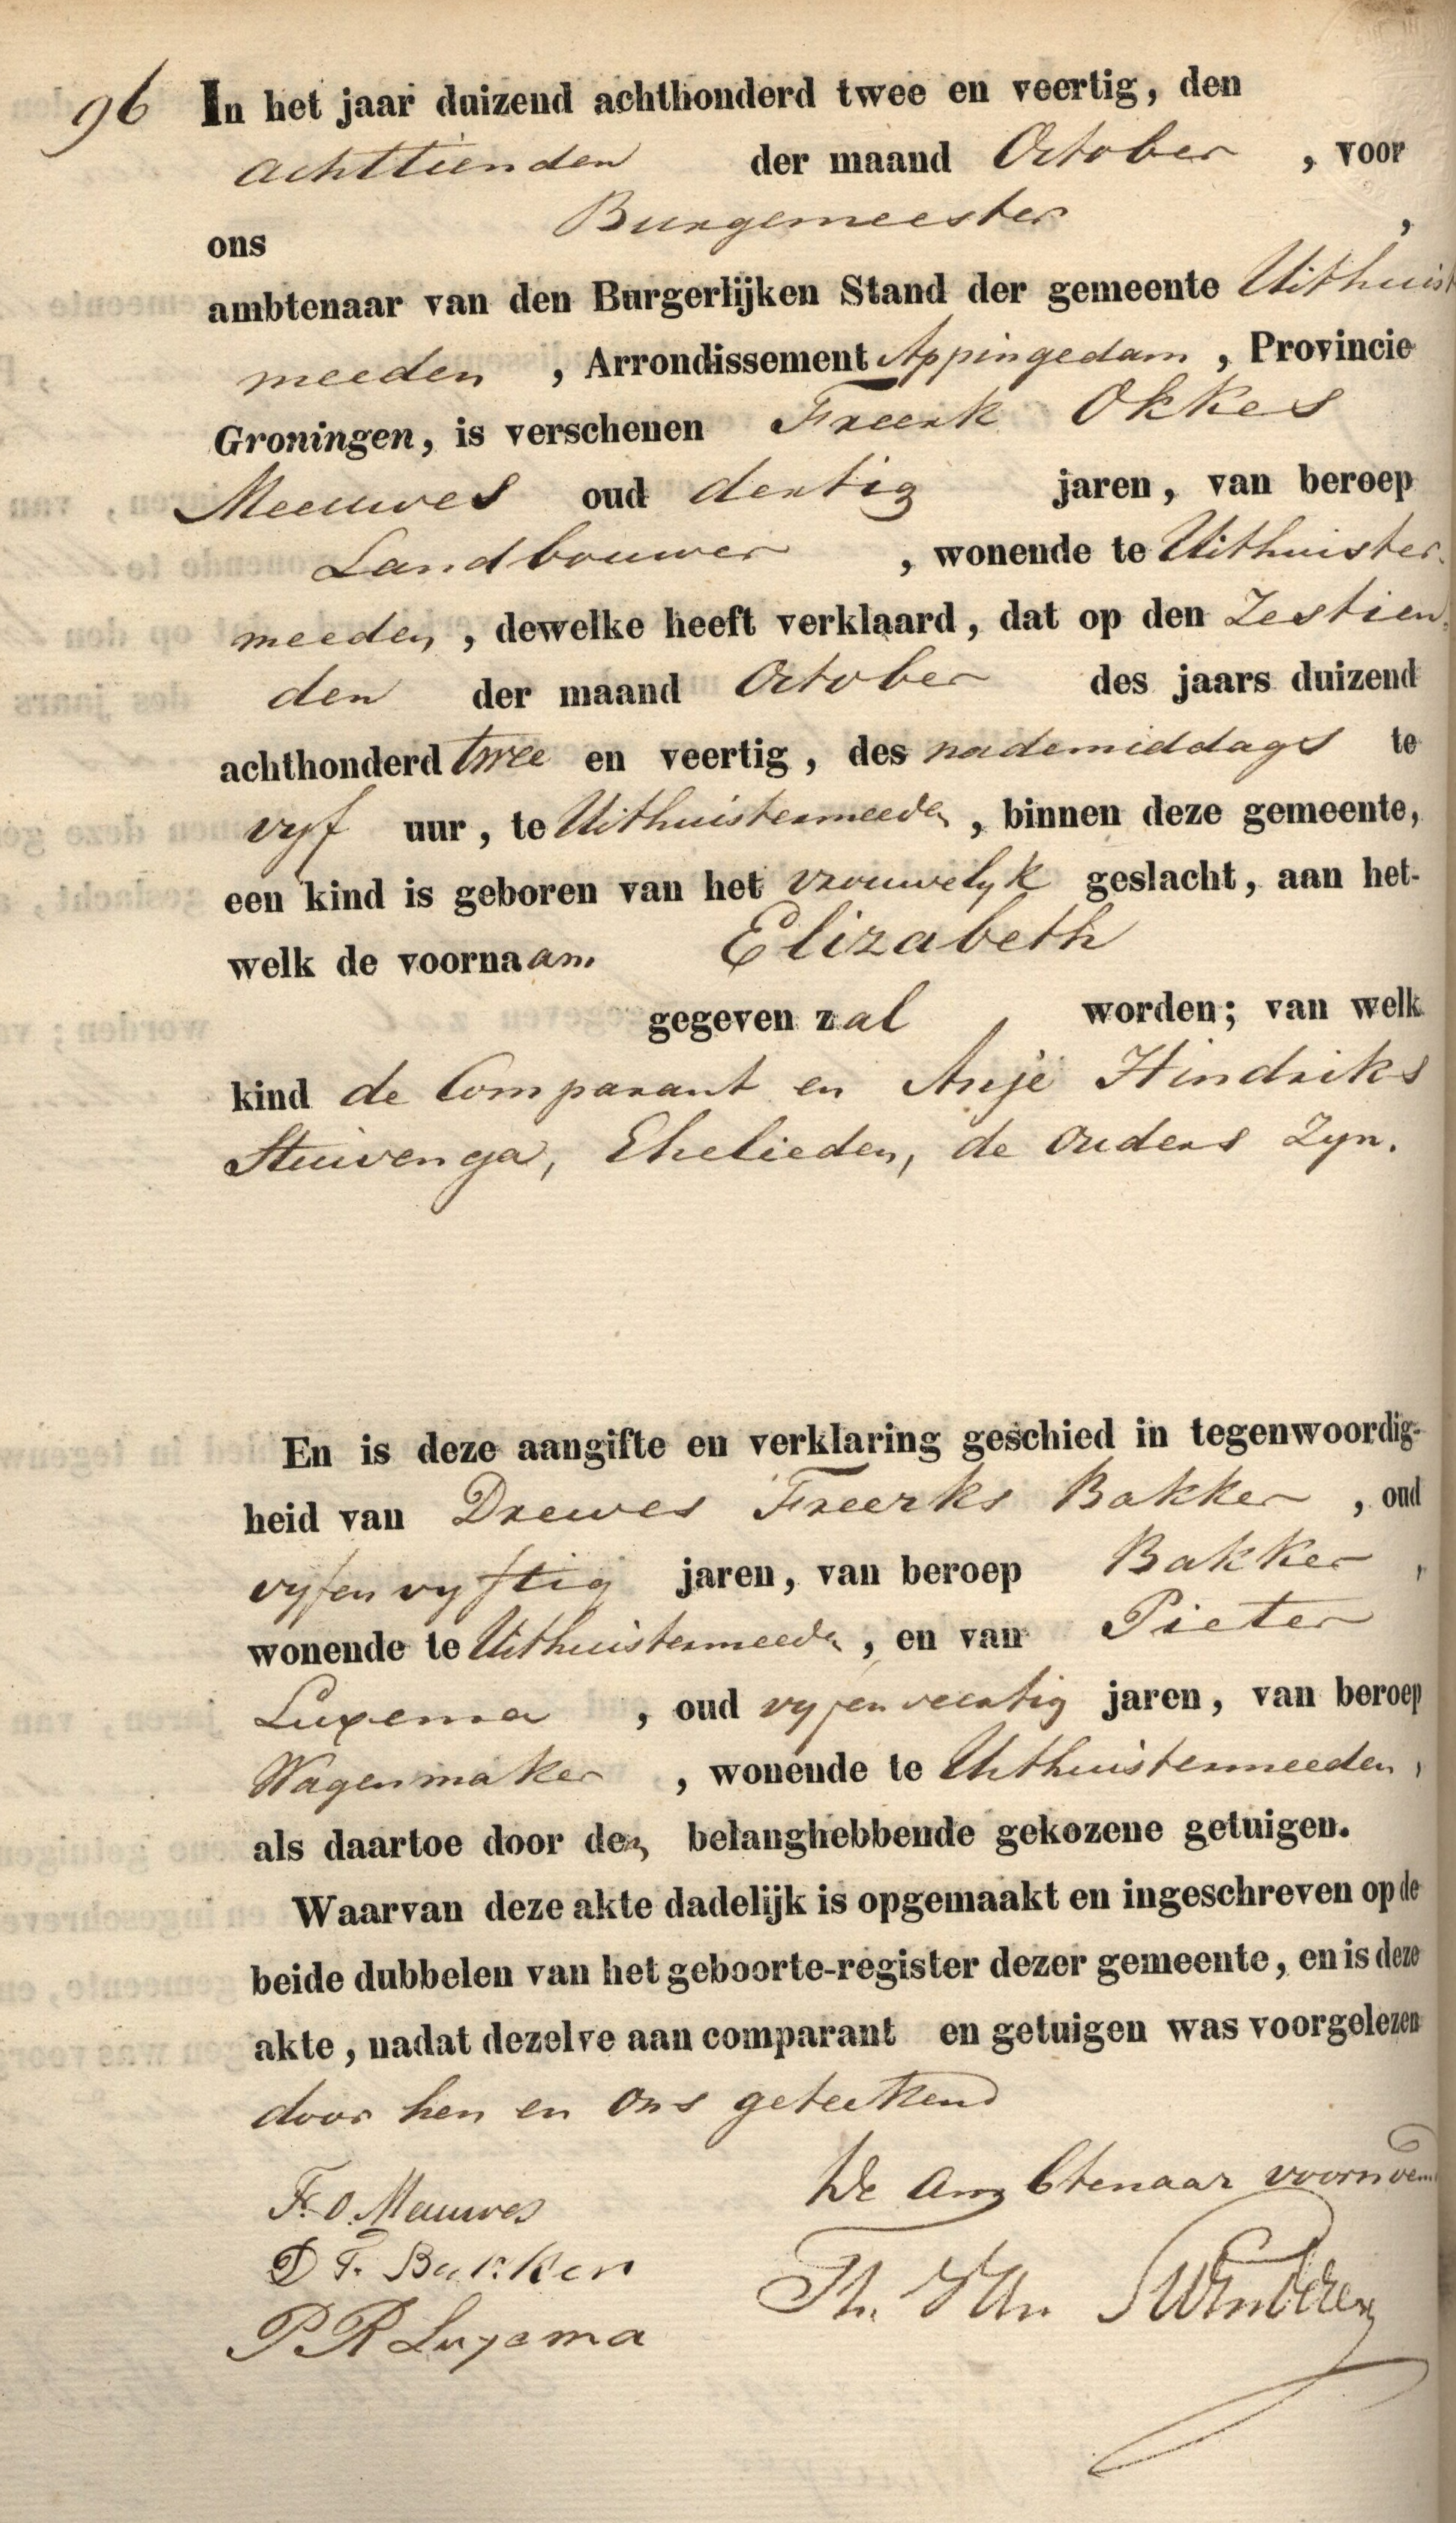 96 In het jaar duizend achthonderd twee en veertig, den
achttienden der maand October , voor
ons Burgemeester ,
ambtenaar van den Burgerlijken Stand der gemeente Uithuist
meeden , Arrondissement Appingedam , Provincie
Groningen, is verschenen Freerk Okkes
Meeuwes oud dertig jaren, van beroep
Landbouwer , wonende te Uithuister-
meeden , dewelke heeft verklaard, dat op den Zestien-
den der maand October des jaars duizend
achthonderd twee en veertig, des nademiddags te
vyf uur, te Uithuistermeeden , binnen deze gemeente,
een kind is geboren van het vrouwelyk geslacht, aan het-
welk de voornaam Elizabeth
gegeven zal worden; van welk
kind de Comparant en Anje Hindriks
Stuivenga, Ehelieden, de ouders Zyn.
En is deze aangifte en verklaring geschied in tegenwoordig-
heid van Drewes Freerks Bakker , oud
vyfenvyftig jaren, van beroep Bakker ,
wonende te Uithuistermeeden , en van Pieter
Luxema , oud vyfenveertig jaren, van beroep
Wagenmaker , wonende te Uithuistermeeden ,
als daartoe door den belanghebbende gekozene getuigen.
Waarvan deze akte dadelijk is opgemaakt en ingeschreven op de
beide dubbelen van het geboorte-register dezer gemeente, en is deze
akte, nadat dezelve aan comparant en getuigen was voorgelezen
door hen en ons geteekend
De Ambtenaar voornoemd
F. O. Meeuwes
D F. Bakker
P R Luxema
Th. Van Swinderen